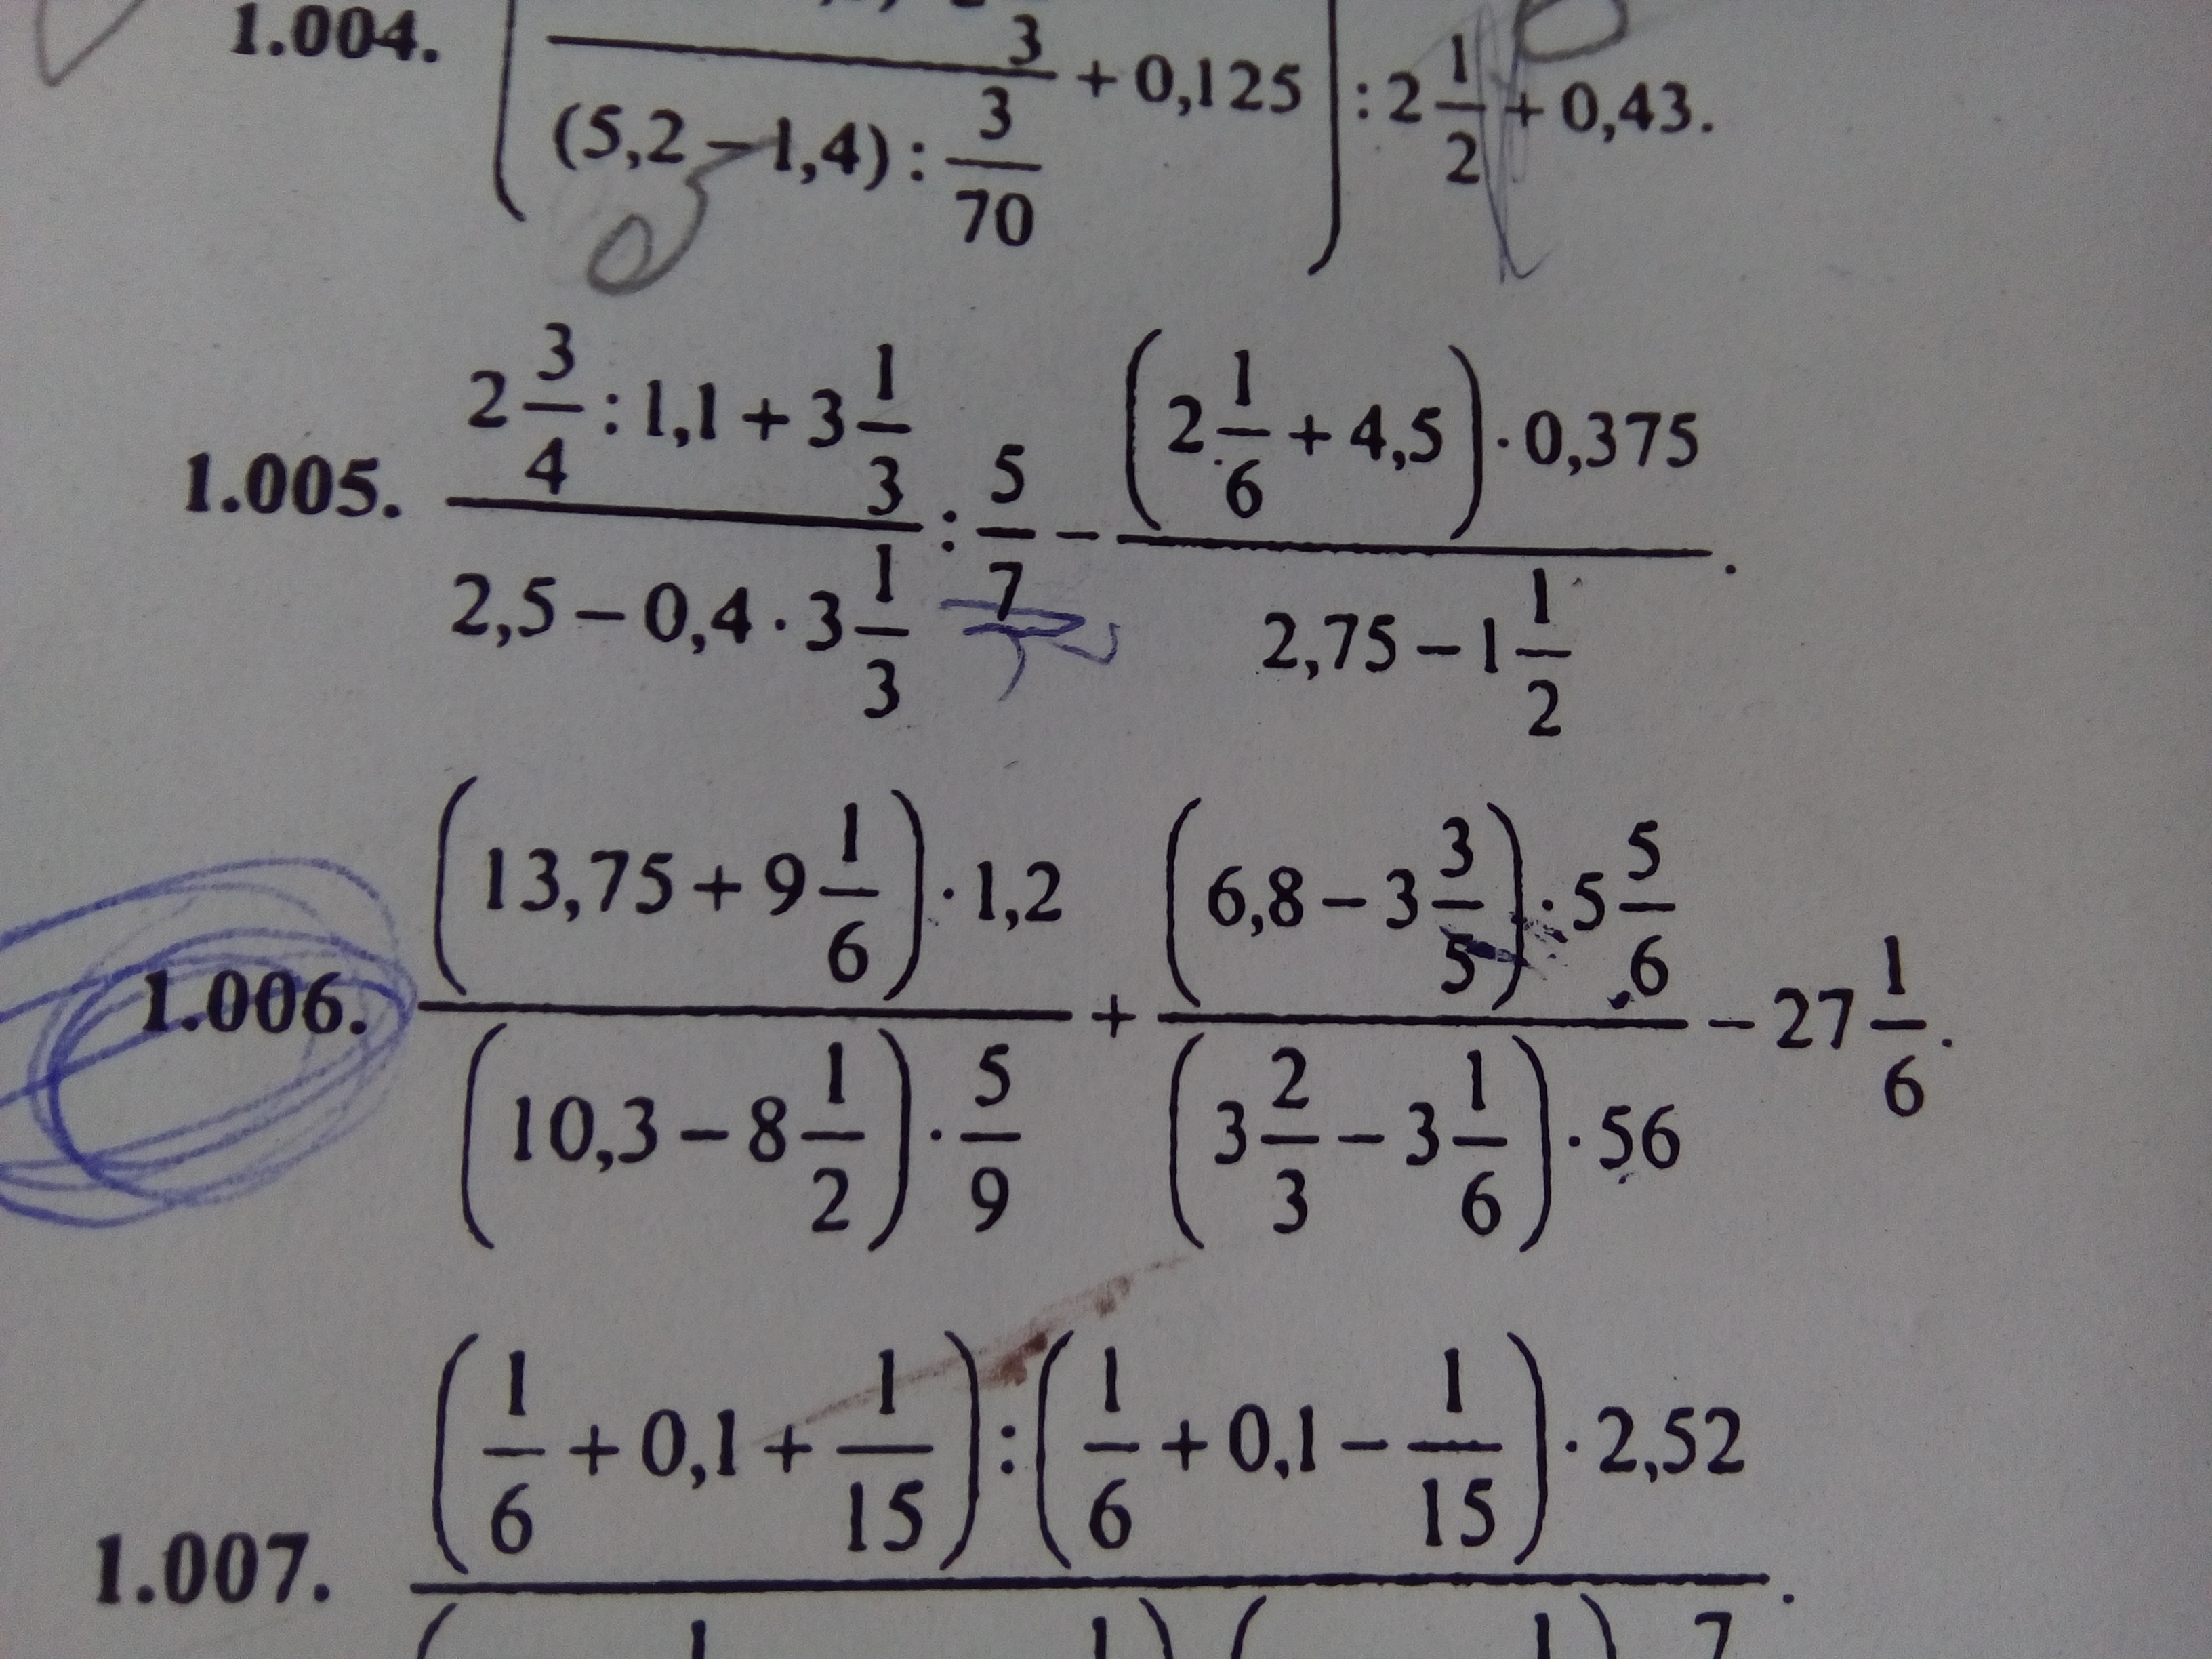 1.004. ( 3 / (5,2 − 1,4) : 3/70 + 0,125 ) : 2 1/2 + 0,43.
1.005. (2 3/4 : 1,1 + 3 1/3) / (2,5 − 0,4 · 3 1/3) : 5/7 − ((2 1/6 + 4,5) · 0,375) / (2,75 − 1 1/2).
1.006. ((13,75 + 9 1/6) · 1,2) / ((10,3 − 8 1/2) · 5/9) + ((6,8 − 3 3/5) · 5 5/6) / ((3 2/3 − 3 1/6) · 56) − 27 1/6.
1.007. (1/6 + 0,1 + 1/15) : (1/6 + 0,1 − 1/15) · 2,52